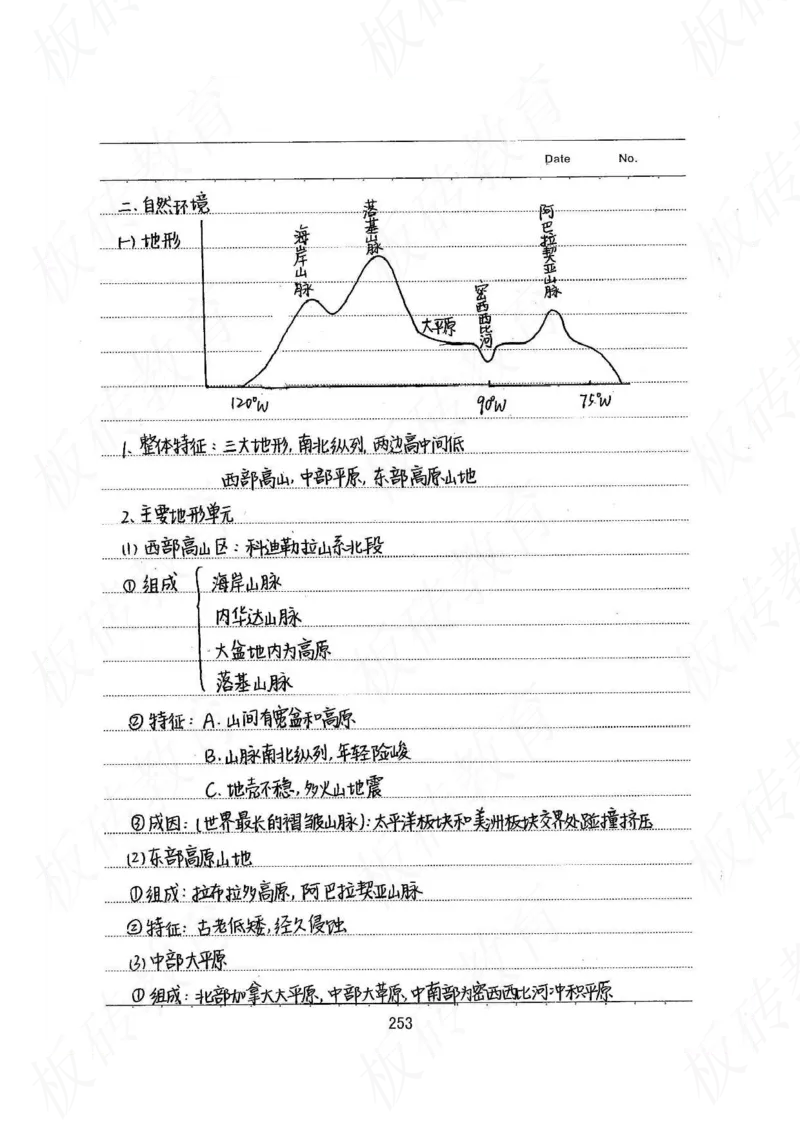 Date No.
二、自然环境
(一) 地形
海岸山脉
落基山脉
大平原
密西西比河
阿巴拉契亚山脉
120°W 90°W 75°W
1、整体特征：三大地形，南北纵列，两边高中间低
西部高山，中部平原，东部高原山地
2、主要地形单元
(1) 西部高山区：科迪勒拉山系北段
① 组成
海岸山脉
内华达山脉
大盆地内为高原
落基山脉
② 特征：A. 山间有宽盆和高原
B. 山脉南北纵列，年轻险峻
C. 地壳不稳，多火山地震
③ 成因：(世界最长的褶皱山脉)：太平洋板块和美洲板块交界处碰撞挤压
(2) 东部高原山地
① 组成：拉布拉多高原，阿巴拉契亚山脉
② 特征：古老低矮，经久侵蚀
(3) 中部大平原
① 组成：北部加拿大大平原，中部大草原，中南部为密西西比河冲积平原
253
板砖教育